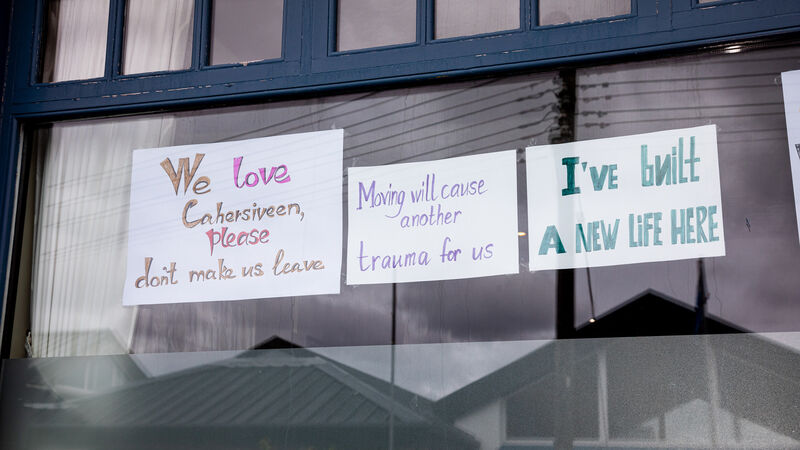 We love
Cahersiveen,
please
don't make us leave
Moving will cause
another
trauma for us
I've built
A NEW LIFE HERE